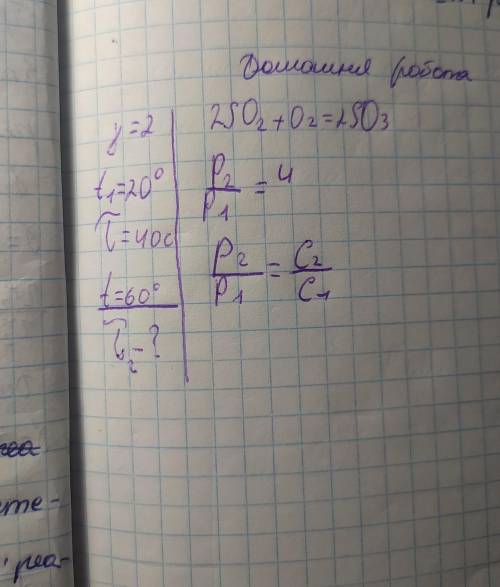 Домашня робота
γ=2
t₁=20°
τ=40с
t=60°
τ₂-?
2SO₂+O₂=2SO₃
P₂/P₁ = 4
P₂/P₁ = C₂/C₁
сте-
реа-